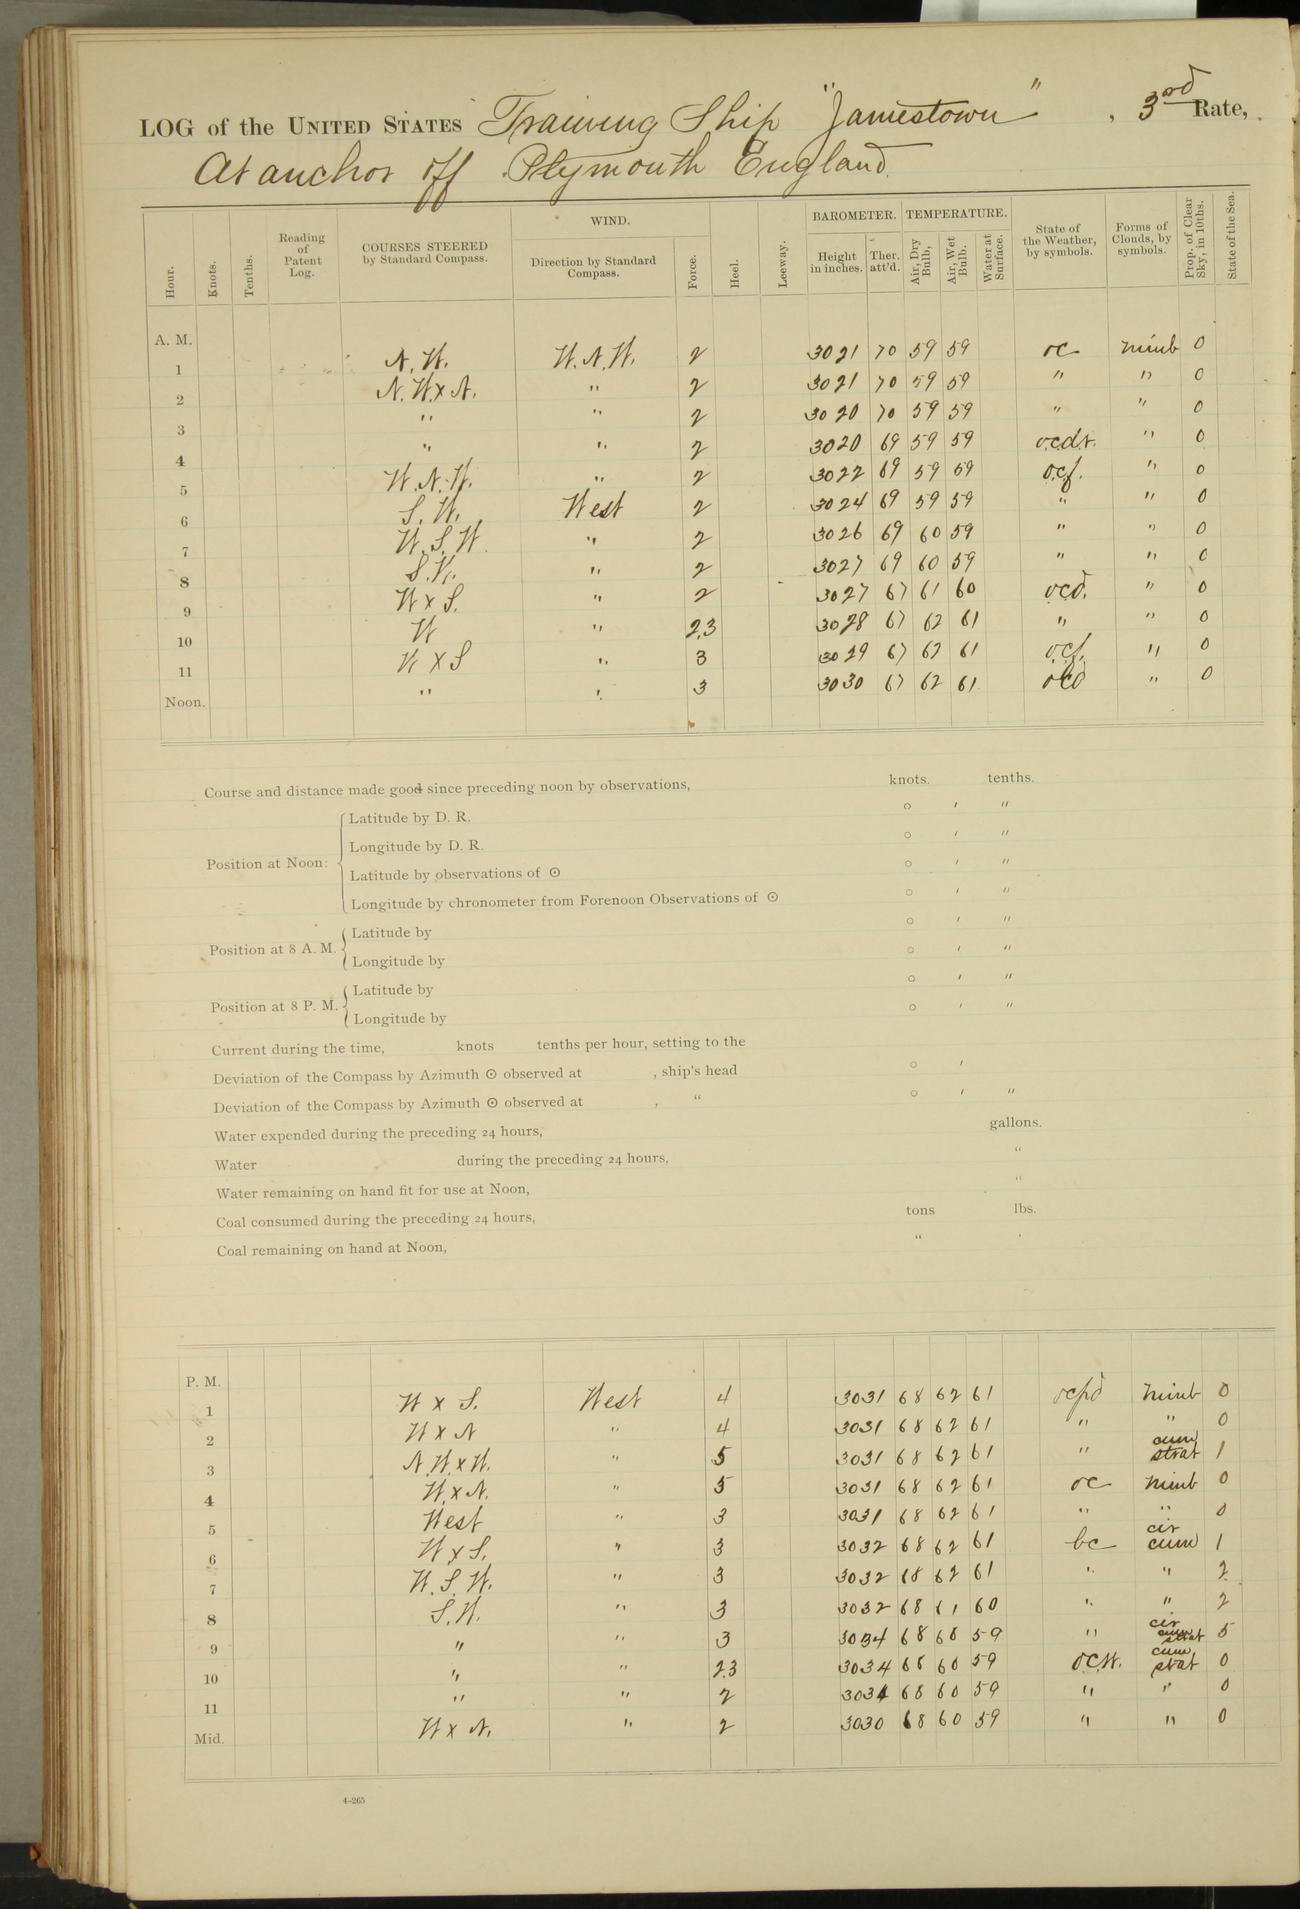 LOG of the UNITED STATES Training Ship "Jamestown", 3rd Rate,
At anchor off Plymouth England.
Hour. Knots. Tenths. Reading of Patent Log. COURSES STEERED by Standard Compass. WIND. Direction by Standard Compass. Force. Heel. Leeway. BAROMETER. Height in inches. Ther. att'd. TEMPERATURE. Air, Dry Bulb, Air, Wet Bulb. Water at Surface. State of the Weather, by symbols. Forms of Clouds, by symbols. Prop. of Clear Sky, in 10ths. State of the Sea.
A. M.
1 N. W. W. N. W. 2 3021 70 59 59 oc nimb 0
2 N. W. x N. " 2 3021 70 59 59 " " 0
3 " " 2 3020 70 59 59 " " 0
4 " " 2 3020 69 59 59 " 0
5 W. N. W. " 2 3022 69 59 59 ocf. " 0
6 S. W. West 2 3024 69 59 59 " " 0
7 W. S. W. " 2 3026 69 60 59 " " 0
8 S. W. " 2 3027 69 60 59 " " 0
9 W x S. " 2 3027 67 61 60 ocd. " 0
10 W " 2.3 3028 67 62 61 " " 0
11 W x S " 3 3029 67 62 61 ocf. " 0
Noon. " " 3 3030 67 62 61 ocd " 0
Course and distance made good since preceding noon by observations, knots. tenths.
Position at Noon: Latitude by D. R. ° ′ ″
Longitude by D. R. ° ′ ″
Latitude by observations of ☉ ° ′ ″
Longitude by chronometer from Forenoon Observations of ☉ ° ′ ″
Position at 8 A. M. Latitude by ° ′ ″
Longitude by ° ′ ″
Position at 8 P. M. Latitude by ° ′ ″
Longitude by ° ′ ″
Current during the time, knots tenths per hour, setting to the
Deviation of the Compass by Azimuth ☉ observed at , ship's head ° ′
Deviation of the Compass by Azimuth ☉ observed at , " ° ′ ″
Water expended during the preceding 24 hours, gallons.
Water during the preceding 24 hours, "
Water remaining on hand fit for use at Noon, "
Coal consumed during the preceding 24 hours, tons lbs.
Coal remaining on hand at Noon, " '
P. M.
1 W x S. West 4 3031 68 62 61 ocpd nimb 0
2 W x N " 4 3031 68 62 61 " " 0
3 N. W. x W. " 5 3031 68 62 61 " cum strat 1
4 W. x N. " 5 3031 68 62 61 oc nimb 0
5 West " 3 3031 68 62 61 " " 0
6 W x S. " 3 3032 68 62 61 bc cir cum 1
7 W. S. W. " 3 3032 68 62 61 " " 2
8 S. W. " 3 3032 68 61 60 " " 2
9 " " 3 3034 68 60 59 " cir cum strat 5
10 " " 2.3 3034 68 60 59 cum strat 0
11 " " 2 3034 68 60 59 " " 0
Mid. W x N. " 2 3030 68 60 59 " " 0
4-265